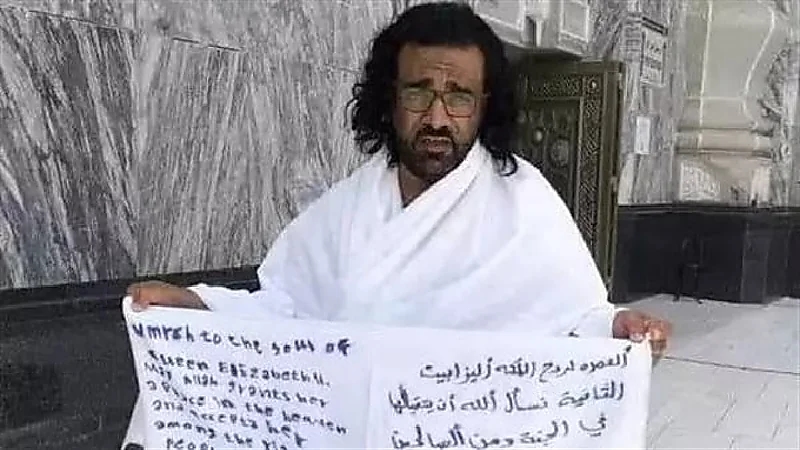 Umrah to the soul of
Queen Elizabeth II.
May Allah grants her
a place in the heaven
and accepts her
among the
العمره لروح الملكه أليزابيت
الثانية نسأل الله أن يتقبلها
في الجنة ومن الصالحين